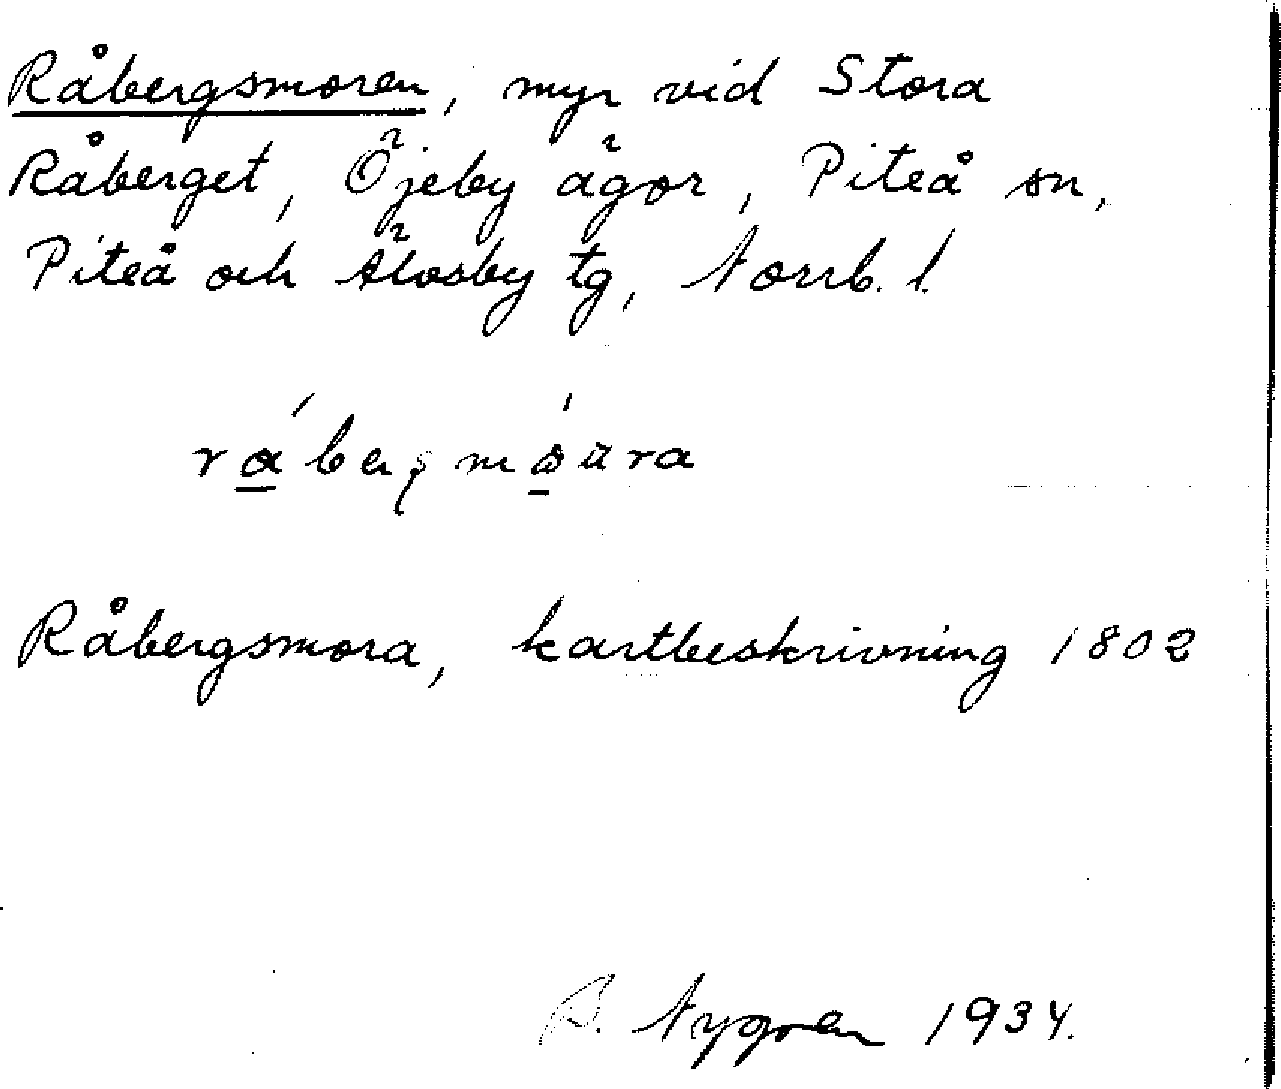 Råbergsmoren, myr vid Stora
Råberget, Öjeby ägor, Piteå sn,
Piteå och Älvsby tg, Norrb. l.
Råbergsmora, kartbeskrivning 1802
B. Nygren 1934.